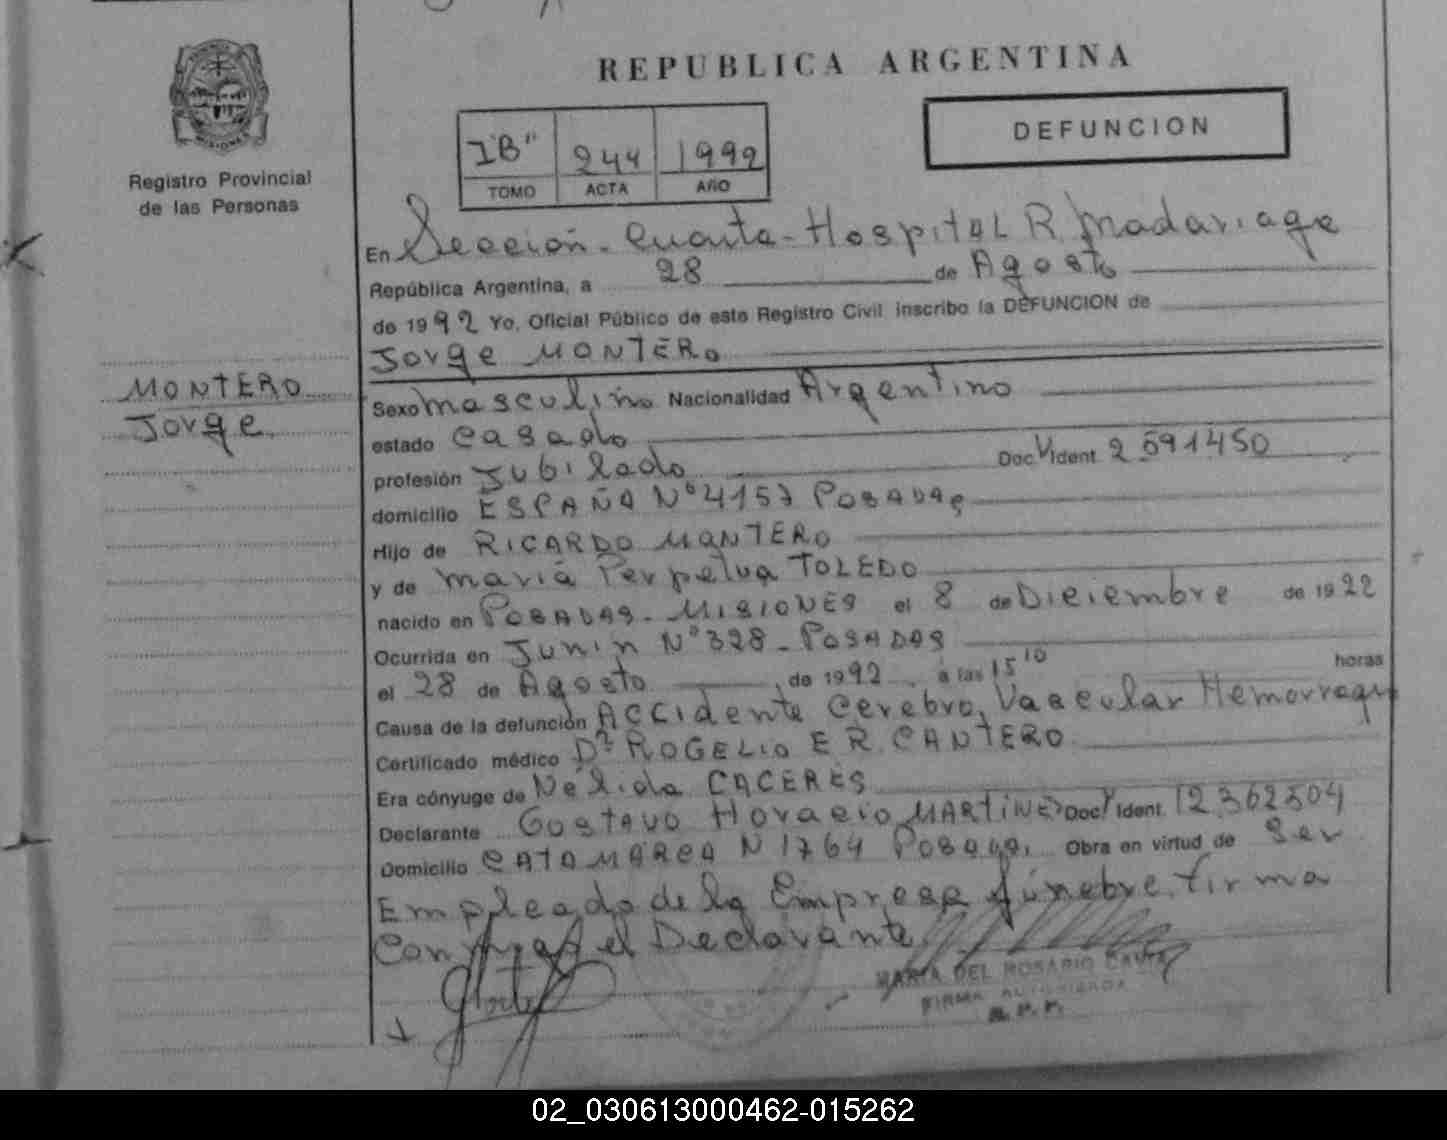 REPUBLICA ARGENTINA
DEFUNCION
MISIONES
Registro Provincial
de las Personas
"B" 244 1992
TOMO ACTA AÑO
En Sección Cuarta - Hospital R. Madariaga
República Argentina, a 28 de Agosto
de 1992 Yo, Oficial Público de este Registro Civil inscribo la DEFUNCION de
Jorge MONTERO
MONTERO
Jorge
Sexo masculino Nacionalidad Argentino
estado casado
profesión Jubilado Doc. Ident. 2591450
domicilio ESPAÑA Nº 4157 POSADAS
Hijo de RICARDO MONTERO
y de María Perpetua TOLEDO
nacido en POSADAS - MISIONES el 8 de Diciembre de 1922
Ocurrida en Junin Nº 328 - POSADAS
el 28 de Agosto de 1992 a las 15 10 horas
Causa de la defunción Accidente Cerebro Vascular Hemorragi
Certificado médico Dr ROGELIO E R. CANTERO
Era cónyuge de Nélida CACERES
Declarante Gustavo Horacio MARTINES Doc. Ident. 12362504
Domicilio CATAMARCA N 1764 POSADAS. Obra en virtud de Ser
Empleado de la Empresa fúnebre, firma
Conmigo el Declarante
MARIA DEL ROSARIO
FIRMA AUTORIZADA
R. P. P.
02_030613000462-015262